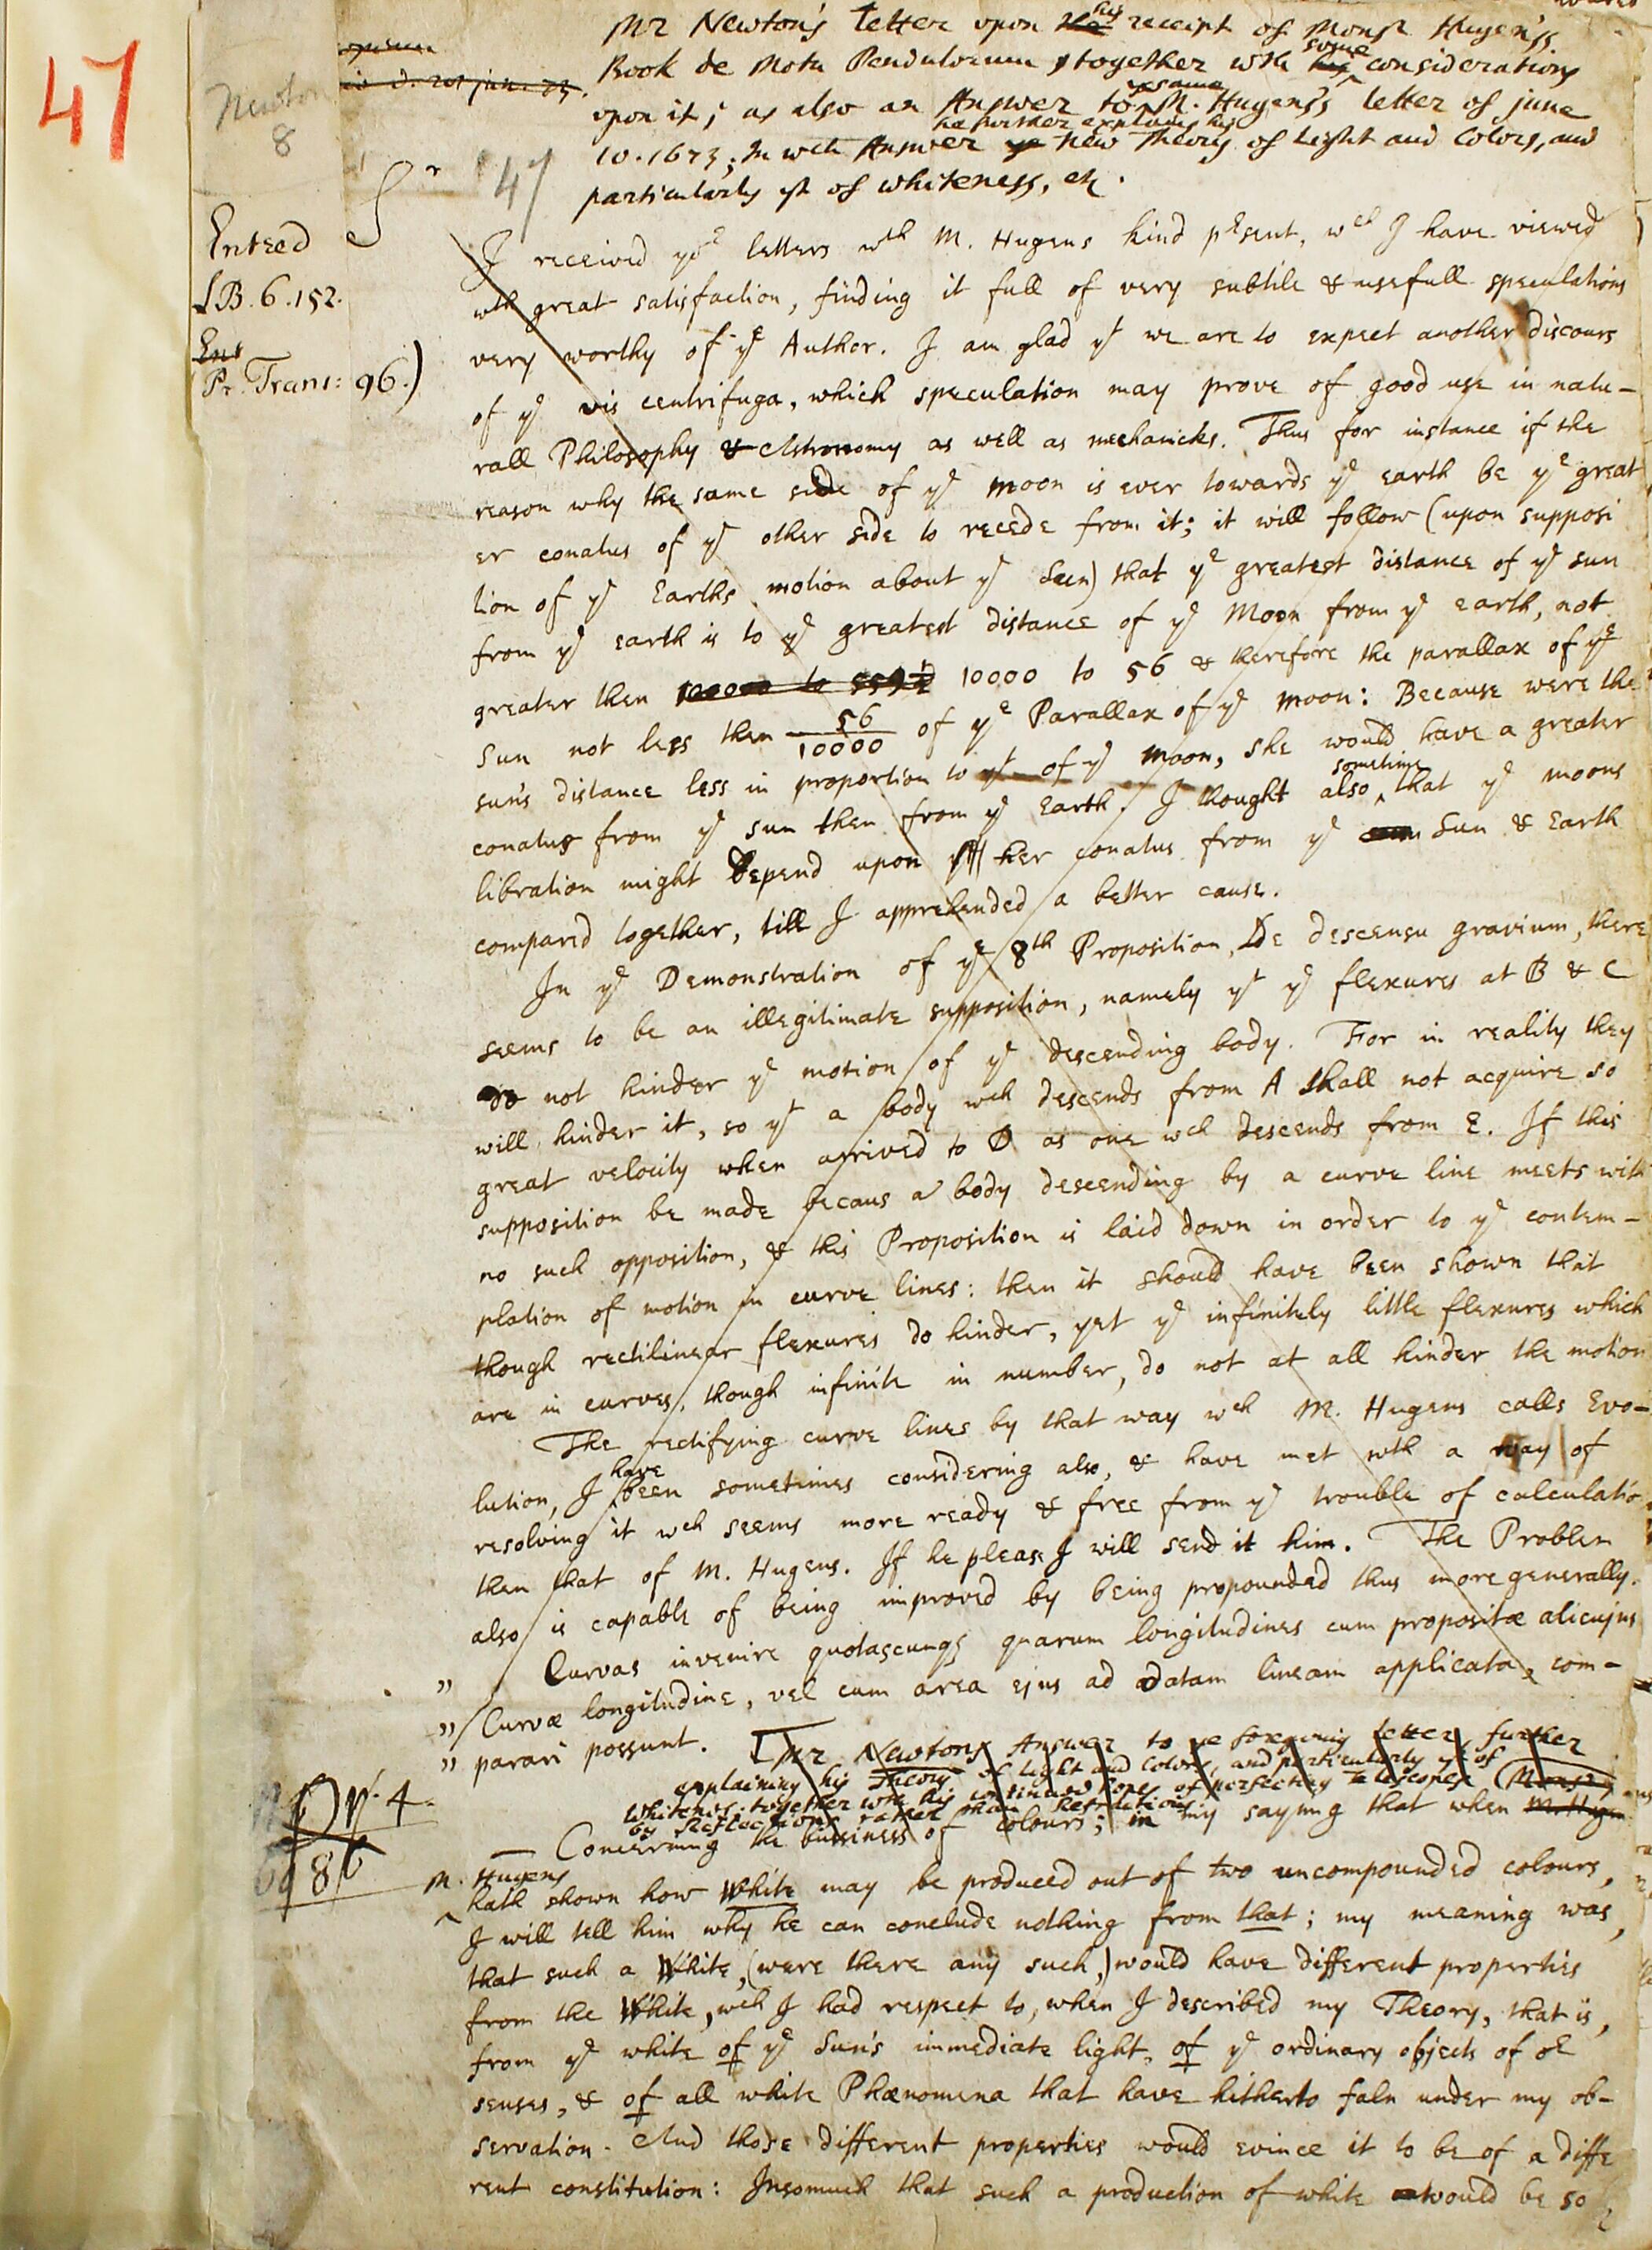 47
Newton
8
47
Mr Newton's letter upon the his receipt of Monsr Hugens's
Book de Motu Pendulorum, together wth his some considerations
upon it; as also an Answer to ye same M. Hugens's letter of june
10. 1673; In wch Answer he further explains his ye New Theory of Light and Colors, and
particularly yt of whiteness, etc.
Sr
Entred
LB. 6. 152.
Ent
Pr. Trans: 96.)
I received yor letters wth M. Hugens kind prsent, wch I have viewed
wth great satisfaction, finding it full of very subtile & usefull speculations
very worthy of ye Author. I am glad yt we are to expect another discours
of ye vis centrifuga, which speculation may prove of good use in natu-
rall Philosophy & Astronomy as well as mechanicks. Thus for instance if the
reason why the same side of ye moon is ever towards ye earth be ye great
er conatus of ye other side to recede from it; it will follow (upon supposi
tion of ye Earths motion about ye Sun) that ye greatest distance of ye sun
from ye earth is to ye greatest distance of ye Moon from ye earth, not
greater then 100000 to 559½ 10000 to 56 & therefore the parallax of ye
Sun not less then 56/10000 of ye Parallax of ye moon: Because were the
sun's distance less in proportion to yt of ye moon, she would have a greater
conatus from ye sun then from ye Earth. I thought also sometime that ye moons
libration might depend upon her conatus from ye Sun & Earth
compared together, till I apprehended a better cause.
In ye Demonstration of ye 8th Proposition, De descensu gravium, there
seems to be an illegitimate supposition, namely yt ye flexures at B & C
do not hinder ye motion of ye descending body. For in reality they
will hinder it, so yt a body wch descends from A shall not acquire so
great velocity when arrived to D as one wch descends from E. If this
supposition be made becaus a body descending by a curve line meets with
no such opposition, & this Proposition is laid down in order to ye contem-
plation of motion in curve lines: then it should have been shown that
though rectilinear flexures do hinder, yet ye infinitely little flexures which
are in curves, though infinite in number, do not at all hinder the motion
The rectifying curve lines by that way wch M. Hugens calls Evo-
lution, I have been sometimes considering also, & have met wth a way of
resolving it wch seems more ready & free from ye trouble of calculatio
then that of M. Hugens. If he please I will send it him. The Problem
also is capable of being improved by being propounded thus more generally.
" Curvas invenire quotascunqs quarum longitudines cum propositæ alicujus
" Curvæ longitudine, vel cum area ejus ad datam lineam applicata, com-
" parari possunt.
[Mr Newtons Answer to ye foregoing letter further
explaining his Theory of Light and Colors, and particularly yt of
Whitenes; together wth his continued hopes of perfecting Telescopes
by Reflections rather than Refractions.
No. 4.
86
— Concerning the bussiness of colours; in my saying that when M. Hugens
M. Hugens
hath shown how White may be produced out of two uncompounded colours,
I will tell him why he can conclude nothing from that; my meaning was,
that such a White, (were there any such,) would have different properties
from the White, wch I had respect to, when I described my Theory, that is,
from ye white of ye Sun's immediate light, of ye ordinary objects of or
senses, & of all white Phænomena that have hitherto faln under my ob-
servation. And those different properties would evince it to be of a diffe
rent constitution: Insomuch that such a production of white would be so